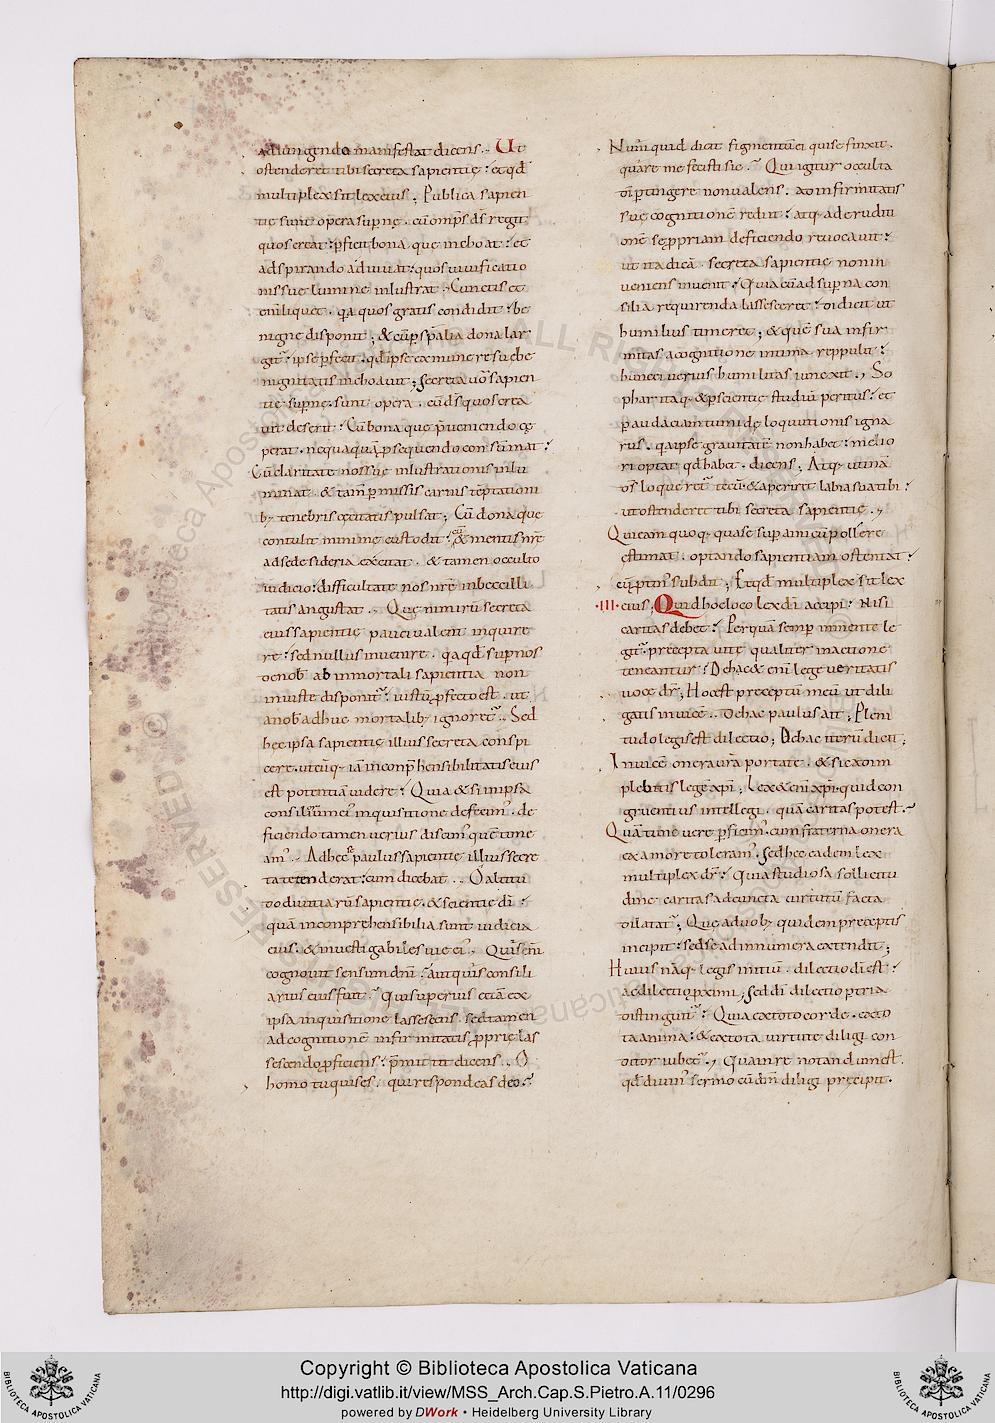 adiungendo manifestat dicens. Ut
ostenderet tibi secreta sapientię. et qd̄
multiplex sit lex eius. Publica sapien
tię sunt opera supnę. cū omp̄s ds̄ regit
quos creat. pficit bona quę inchoat. et
adspirando adiuvat. quos visificatio
nis suę lumine inlustrat. Cunctis et
eni liquet. qa quos gratis condidit. be
nigne disponit; & cū spalia dona lar
git. ipse pfecit. qd̄ ipse ex munere suę be
nignitatis inchoavit; Secreta vo sapien
tię supnę. sunt opera. cū ds̄ quos crea
vit deserit. Cū bona quę pveniendo cę
perat. nequaquā psequendo consummat.
Cū claritate nos suę inlustrationis inlu
minat. & tam pmissis carnis teptationi
b; tenebris cęcitatis pulsat; Cū dona quę
contulit minime custodit. & mentis nrę
ad se desideria excitat. & tamen occulto
iudicio. difficultate nos nrę inbecilli
tatis angustat. Quę nimirū secreta
eius sapientię pauci valent inquire
re. sed nullus invenire. qa qd̄ sup nos
ac nob ab inmortali sapientia non
iniuste disponit. iustū pfecto est. ut
a nob adhuc mortalib; ignoret. Sed
hęc ipsa sapientię illius secreta conspi
cere. utcūq. iā inconphensibilitatis eius
est potentiā videre. Quia & si in ipsa
consilii mei inquisitione defecim. de
ficiendo tamen verius discim quē time
am. Ad hęc paulus sapientię illius secre
ta tetenderat. cum dicebat. O altitu
do divitiarū sapientię. & scientię di.
quā inconprehensibilia sunt iudicia
eius. & investigabiles vię ei. Quis eni
cognovit sensum dni. aut quis consili
arius eius fuit. Qui superius etiā ex
ipsa inquisitione lassescens. sed tamen
ad cognitionē infirmitatis pprię las
sescendo pficiens. pmittit dicens. O
homo tu quis es. qui respondeas deo.
Nūquid dicit figmentū ei qui se finxit.
quare me fecisti sic. Qui igitur occulta
di ptingere non valens. ad infirmitatis
suę cognitionē rediit. atq ad eruditi
onē se ppriam deficiendo revocavit.
ut ita dicā. secreta sapientię non in
veniens invenit. Quia cū ad supna con
silia requirenda lassesceret. didicit ut
humilius timeret; & quē sua infir
mitas a cognitione intima reppulit.
hunc ei verius humilitas iunexit. So
phar itaq. & p scientię studiū peritus. et
p audaciam tumidę locutionis igna
rus. qa ipse gravitatē non habet. melio
ri optat qd̄ habet. dicens; Atq; utinā
ds̄ loqueret tecū. & aperiret labia sua tibi.
ut ostenderet tibi secreta sapientię.
Qui eam quoq. qua se sup amicū pollere
estimat. optando sapientiam ostentat.
Et qd̄ multiplex sit lex
·III· eius; Quid hoc loco lex di accipi. nisi
caritas debet. Per quā semp in mente le
git. precepta vitę qualiter in actione
teneantur. De hac & eni lege veritatis
voce dr; Hoc est preceptū meū ut dili
gatis invicē. De hac paulus ait; Pleni
tudo legis est dilectio; De hac iterū dicit;
Invicē onera vra portate. & sic adim
plebitis legē xpi; Lex & eni xpi. quid con
gruentius intellegi. quā caritas potest.
Quā tunc vere pficim. cum fraterna onera
ex amore toleram. Sed hęc eadem lex
multiplex dr. Quia studiosa sollicitu
dine caritas ad cuncta virtutū facta
dilatat; Quę a duob; quidem preceptis
incipit. sed se ad innumera extendit;
Huius nāq legis initiū. dilectio di est.
ac dilectio pximi; Sed di dilectio p tria
distinguit. Quia ex toto corde. ex to
ta anima. & ex tota virtute diligi con
ditor iubet. Qua in re notandum est.
qd̄ divin sermo cū dm diligi precipit.
Copyright © Biblioteca Apostolica Vaticana
http://digi.vatlib.it/view/MSS_Arch.Cap.S.Pietro.A.11/0296
powered by DWork • Heidelberg University Library
BIBLIOTECA APOSTOLICA VATICANA
BIBLIOTECA APOSTOLICA VATICANA